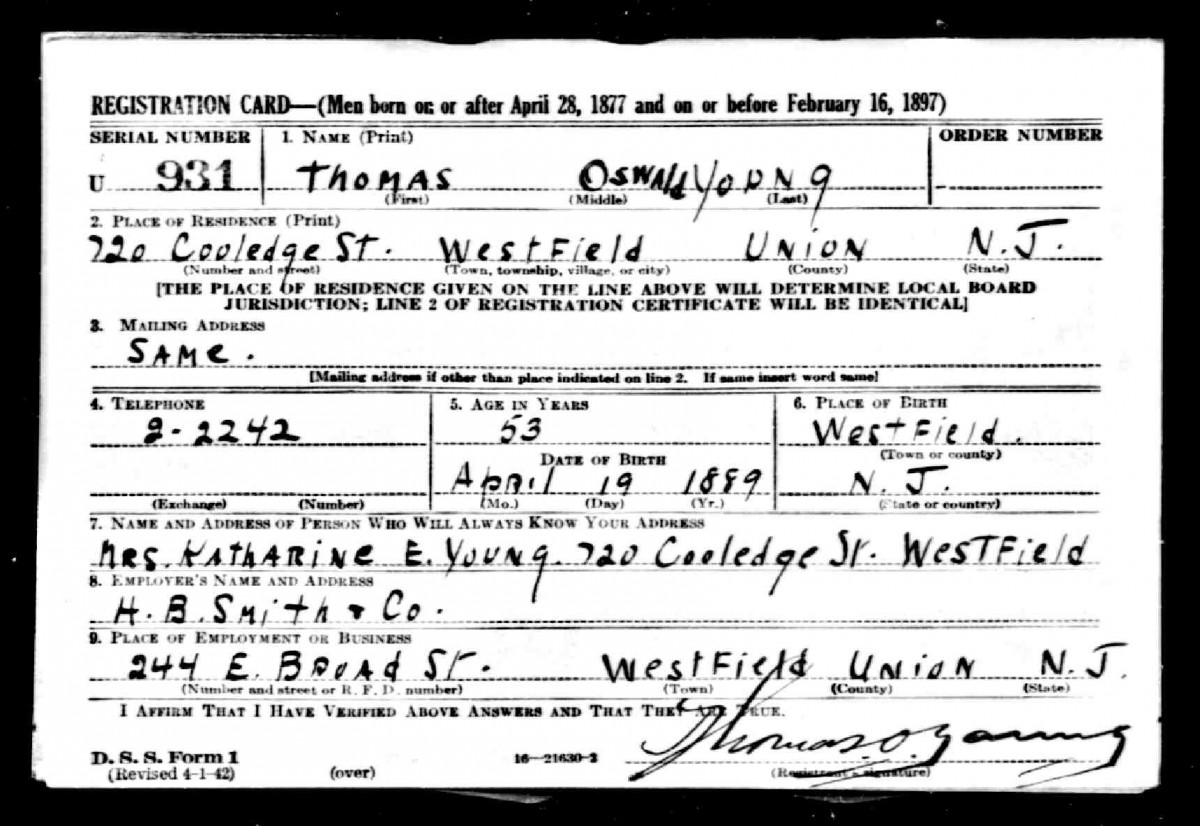 REGISTRATION CARD—(Men born on or after April 28, 1877 and on or before February 16, 1897)
SERIAL NUMBER 1. NAME (Print) ORDER NUMBER
U 931 THOMAS OSWALD YOUNG
(First) (Middle) (Last)
2. PLACE OF RESIDENCE (Print)
720 Cooledge St. Westfield UNION N.J.
(Number and street) (Town, township, village, or city) (County) (State)
[THE PLACE OF RESIDENCE GIVEN ON THE LINE ABOVE WILL DETERMINE LOCAL BOARD
JURISDICTION; LINE 2 OF REGISTRATION CERTIFICATE WILL BE IDENTICAL]
3. MAILING ADDRESS
SAME.
[Mailing address if other than place indicated on line 2. If same insert word same]
4. TELEPHONE 5. AGE IN YEARS 6. PLACE OF BIRTH
2-2242 53 Westfield.
(Town or county)
DATE OF BIRTH
April 19 1889 N.J.
(Exchange) (Number) (Mo.) (Day) (Yr.) (State or country)
7. NAME AND ADDRESS OF PERSON WHO WILL ALWAYS KNOW YOUR ADDRESS
Mrs. Katharine E. Young. 720 Cooledge St. Westfield
8. EMPLOYER'S NAME AND ADDRESS
H. B. Smith & Co.
9. PLACE OF EMPLOYMENT OR BUSINESS
244 E. Broad St. Westfield Union N.J.
(Number and street or R. F. D. number) (Town) (County) (State)
I AFFIRM THAT I HAVE VERIFIED ABOVE ANSWERS AND THAT THEY ARE TRUE.
Thomas O. Young
D. S. S. Form 1
(Revised 4-1-42) (over) 16—21630-2 (Registrant's signature)